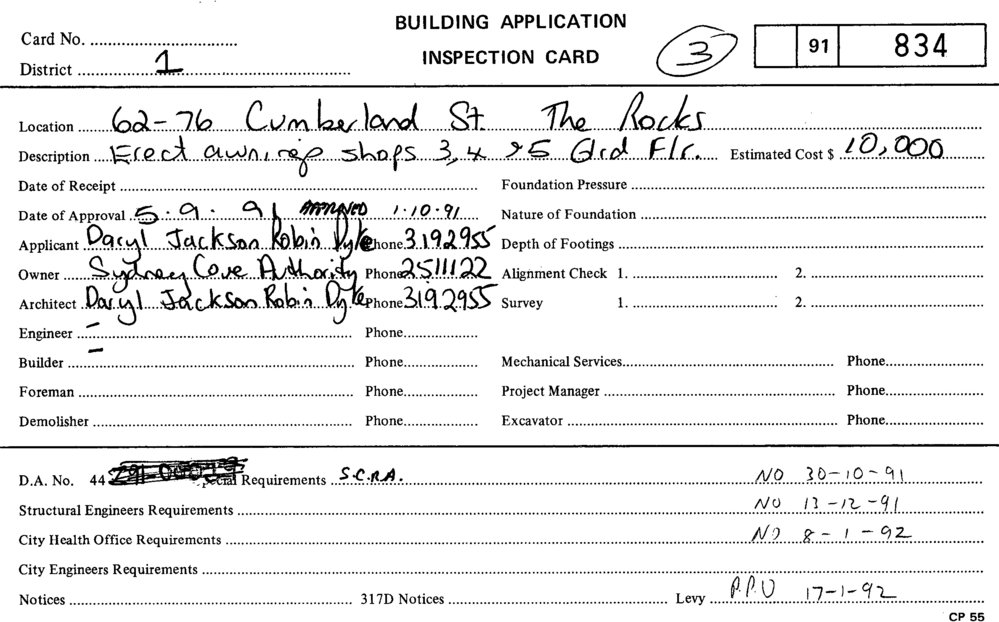 BUILDING APPLICATION
INSPECTION CARD
Card No.
District 1
3
91 834
Location 62-76 Cumberland St. The Rocks
Description Erect awnings shops 3, 4 & 5 Grd Flr. Estimated Cost $ 10,000
Date of Receipt Foundation Pressure
Date of Approval 5.9.91 APPROVED 1.10.91 Nature of Foundation
Applicant Daryl Jackson Robin Dyke Phone 3192955 Depth of Footings
Owner Sydney Cove Authority Phone 2511122 Alignment Check 1. 2.
Architect Daryl Jackson Robin Dyke Phone 3192955 Survey 1. 2.
Engineer - Phone
Builder - Phone Mechanical Services Phone
Foreman Phone Project Manager Phone
Demolisher Phone Excavator Phone
D.A. No. 44 Special Requirements S.C.R.A. NO 30-10-91
Structural Engineers Requirements NO 13-12-91
City Health Office Requirements NO 8-1-92
City Engineers Requirements
Notices 317D Notices Levy P.P.U 17-1-92
CP 55